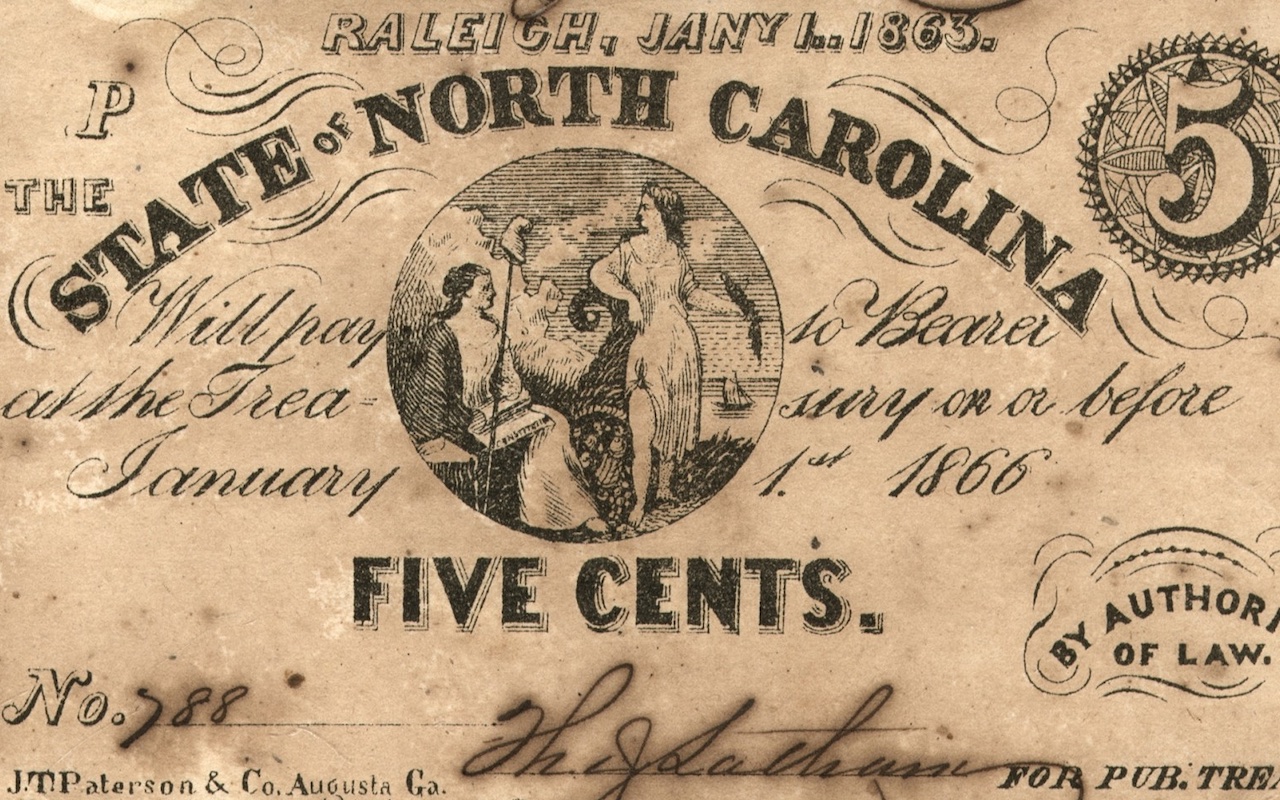 RALEIGH, JANY 1..1863.
P
STATE OF NORTH CAROLINA
5
THE
Will pay to Bearer
at the Trea- sury on or before
January 1.st 1866
FIVE CENTS.
BY AUTHORI
OF LAW.
No. 788
Th J Latham
J.T.Paterson & Co. Augusta Ga.
FOR PUB. TREA